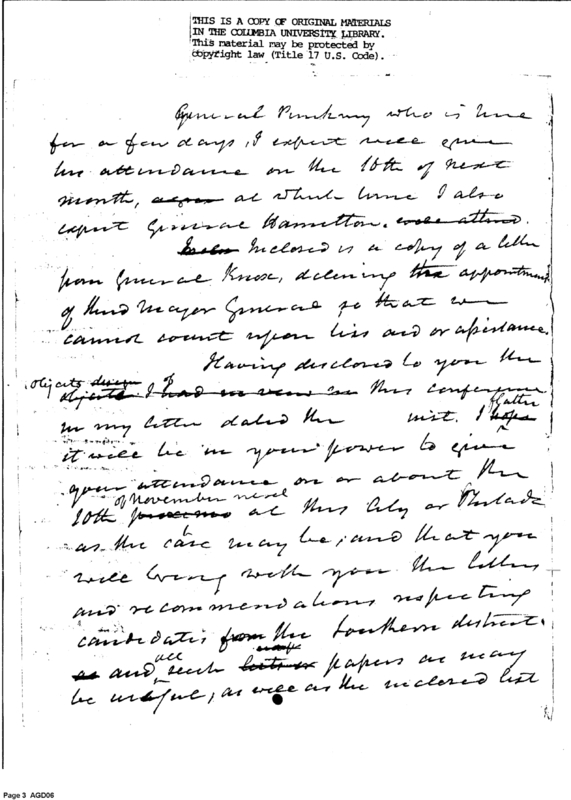 THIS IS A COPY OF ORIGINAL MATERIALS
IN THE COLUMBIA UNIVERSITY LIBRARY.
This material may be protected by
copyright law (Title 17 U.S. Code).
General Pinckney who is here
for a few days, I expect will give
his attendance on the 10th of next
month, at which time I also
expect General Hamilton. will attend.
Inclosed is a copy of a letter
from General Knox, declining the appointment
of third Major General so that we
cannot count upon his aid or assistance.
Having disclosed to you the
objects design of
objects I had in view in this conference
in my letter dated the inst. I hope flatter
it will be in your power to give
your attendance on or about the
of November next
10th proximo at this City or Philada
as the case may be, and that you
will bring with you the letters
and recommendations respecting
candidates from the Southern district.
as and all such papers as may
be useful, as well as the inclosed list
Page 3 AGD06